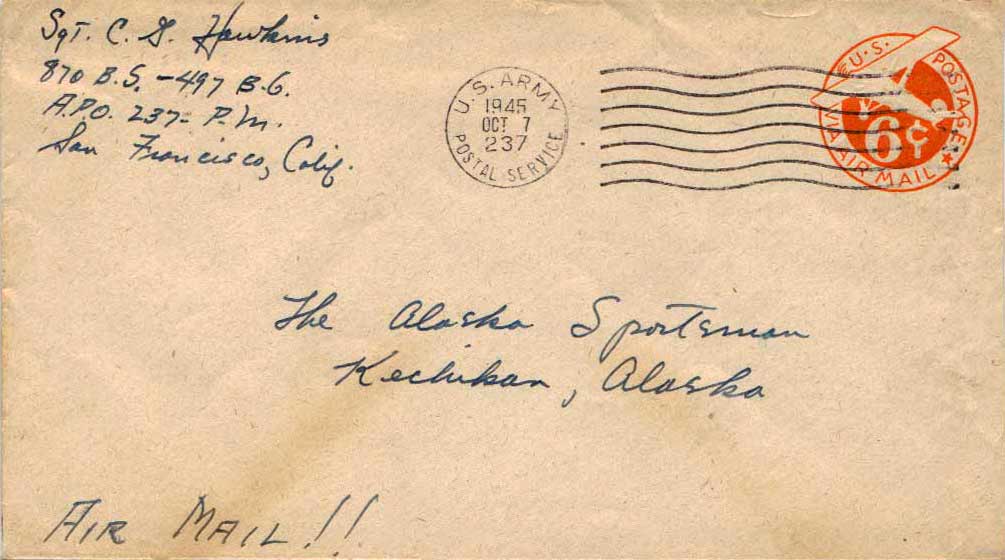 Sgt. C. G. Hawkins
870 B.S. - 497 B.G.
A.P.O. 237 - P.M.
San Francisco, Calif.
U.S. ARMY
1945
OCT 7
237
POSTAL SERVICE
U.S. POSTAGE
6¢
VIA AIR MAIL
The Alaska Sportsman
Kechikan, Alaska
AIR MAIL!!